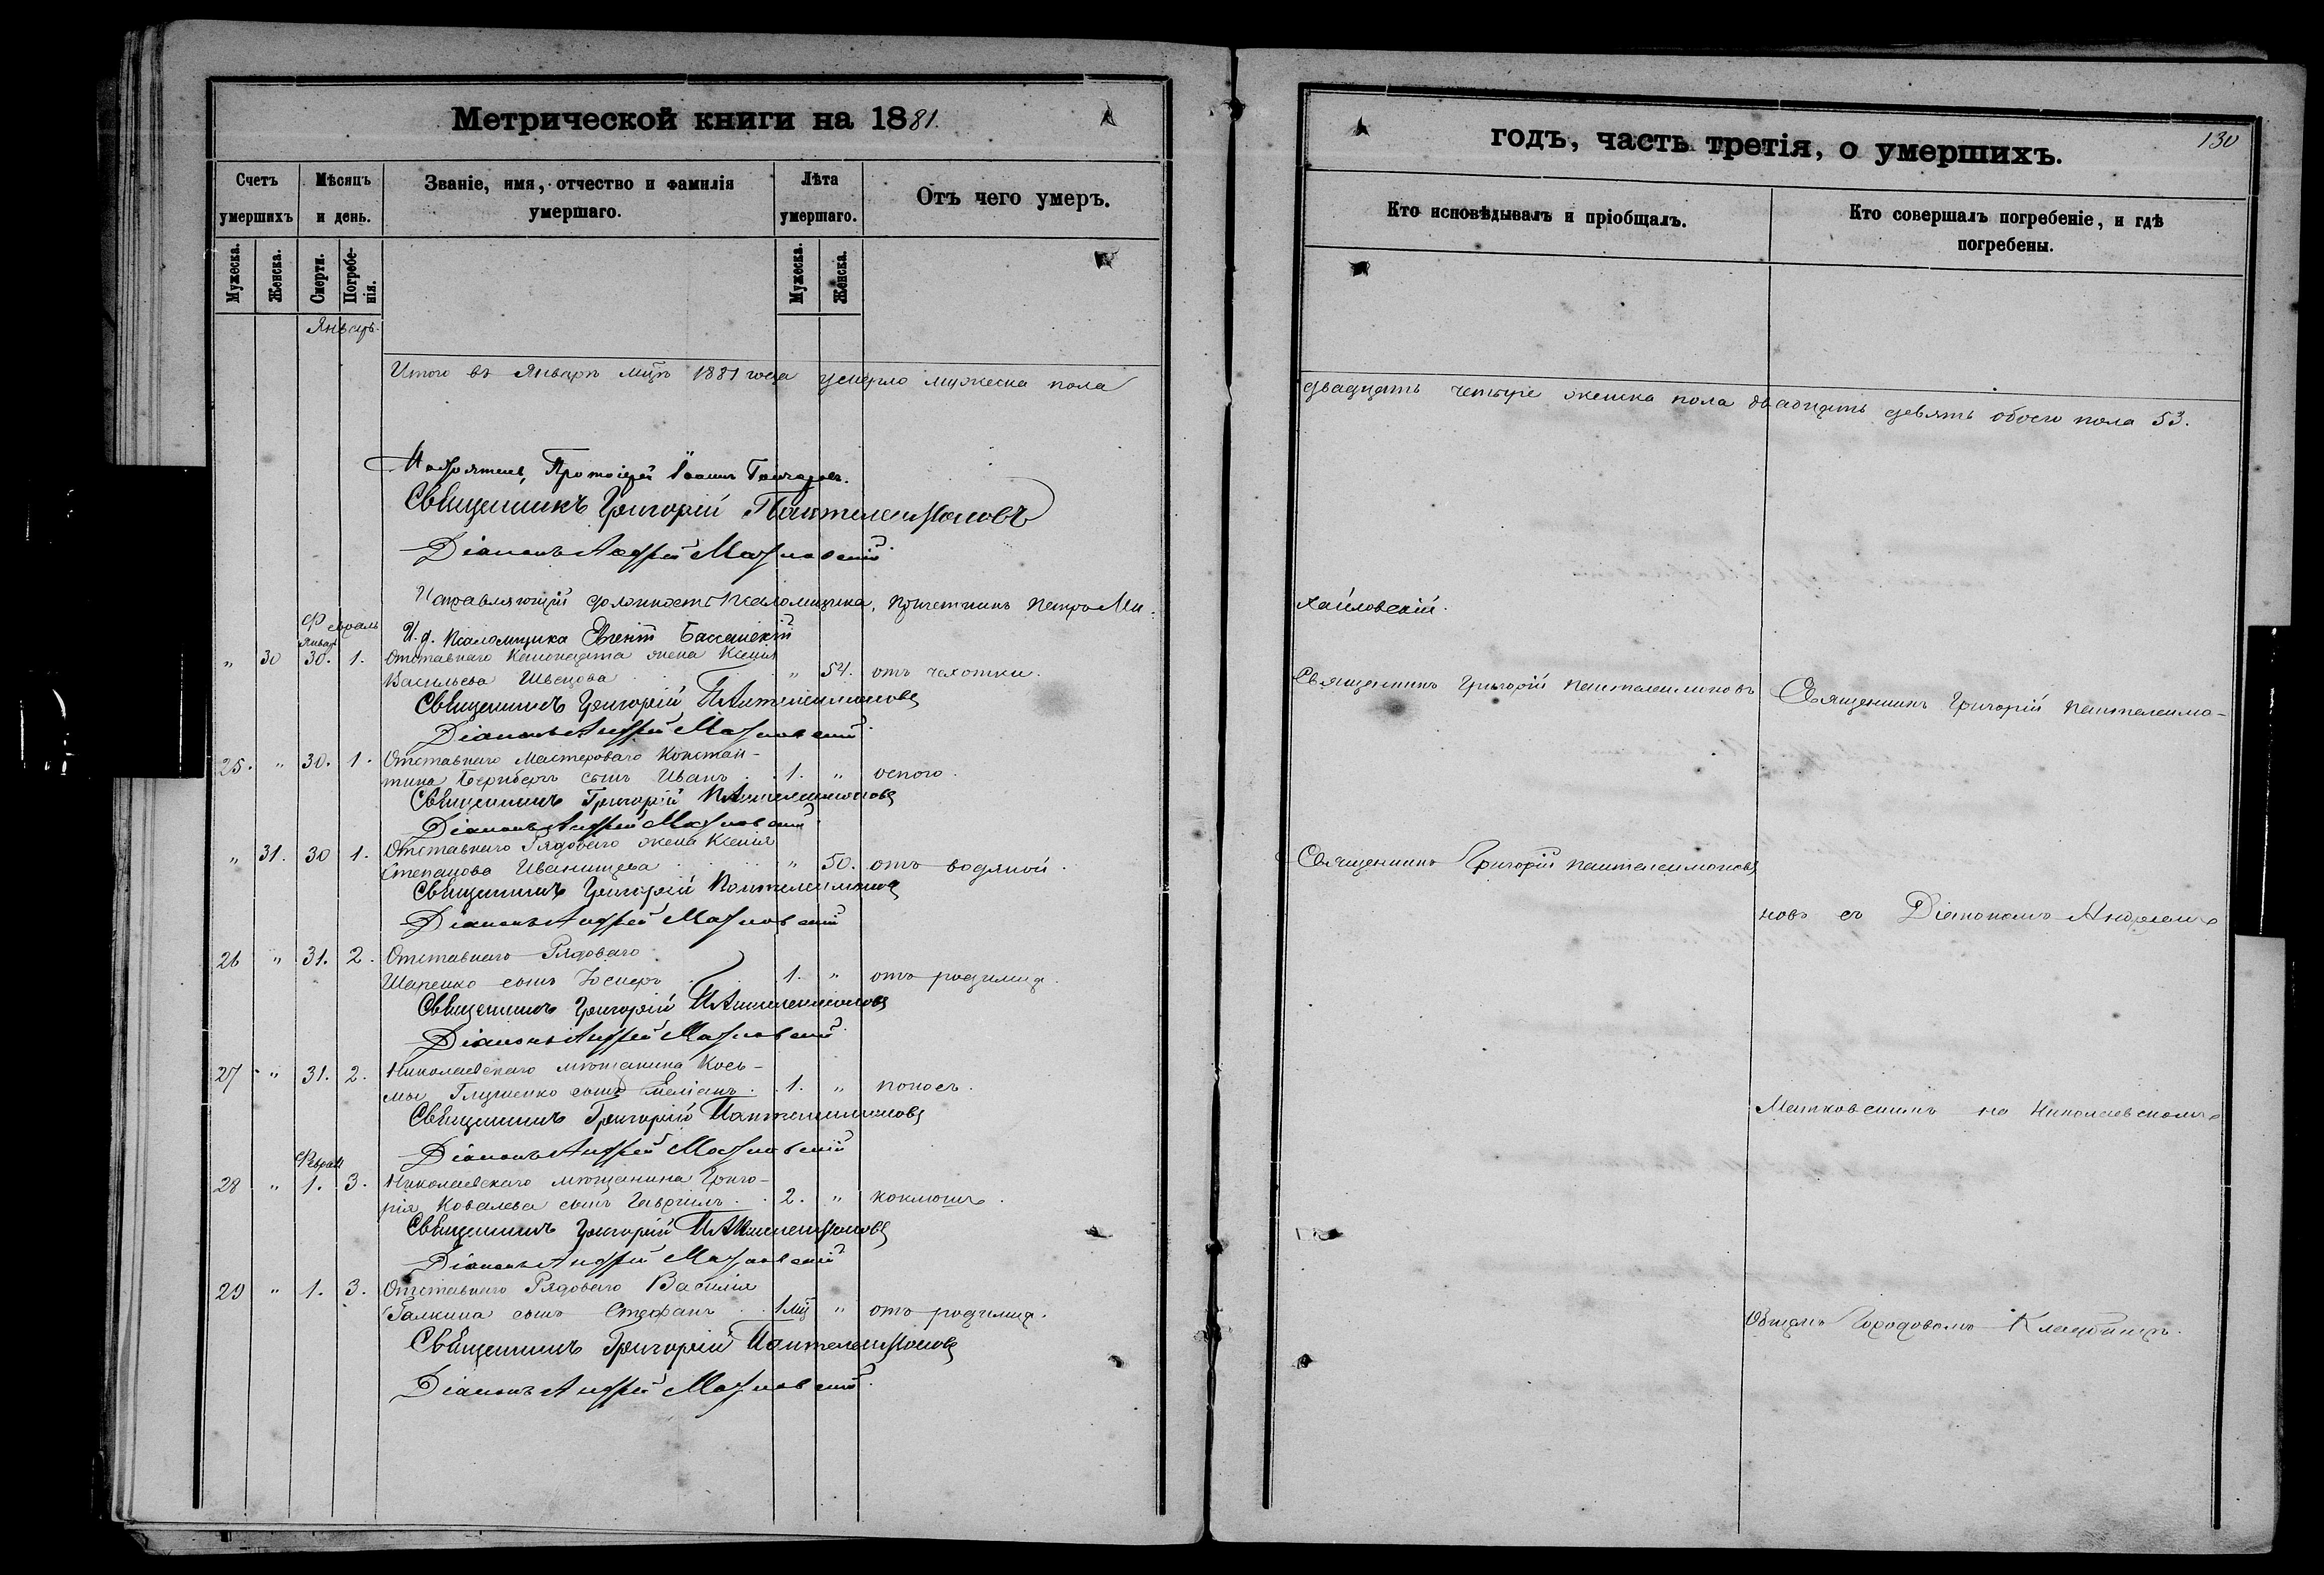 Метрической книги на 1881.
Счетъ умершихъ
Мѣсяцъ и день.
Званіе, имя, отчество и фамилія умершаго.
Лѣта умершаго.
Отъ чего умеръ.
Мужеска. Женска. Смерти. Погребенія. Мужеска. Женска.
Январь.
Итого въ Январѣ мцѣ 1881 года умерло мужеска пола
Протоіерей Іоаннъ
Священникъ Григорій Пантелеимоновъ
Діаконъ Андрей
должность Псаломщика, Причетникъ Петръ Ми-
Февраль
И. д. Псаломщика
Январь
" 30 30. 1. Отставнаго жена Ксенія
Васильева Швецова " 54. отъ чахотки.
Священникъ Григорій Пантелеимоновъ
Діаконъ Андрей
25. " 30. 1. Отставнаго Мастероваго Констан-
тина сынъ Иванъ 1. " оспою.
Священникъ Григорій Пантелеимоновъ
Діаконъ Андрей
" 31. 30 1. Отставнаго Рядоваго жена Ксенія
Степанова Иванищева " 50. отъ водяной.
Священникъ Григорій Пантелеимоновъ
Діаконъ Андрей
26 " 31. 2. Отставнаго Рядоваго
Шапенко сынъ 1. " отъ родимца.
Священникъ Григорій Пантелеимоновъ
Діаконъ Андрей
27 " 31. 2. Николаевскаго мѣщанина Кось-
мы Глущенко сынъ 1. " поносъ.
Священникъ Григорій Пантелеимоновъ
Діаконъ Андрей
Февраль
28 " 1. 3. Николаевскаго мѣщанина Григо-
рія Ковалева сынъ Гавріилъ 2. " коклюшъ.
Священникъ Григорій Пантелеимоновъ
Діаконъ Андрей
29 " 1. 3. Отставнаго Рядоваго Василія
Галкина сынъ Стефанъ 1 мц " отъ родимца.
Священникъ Григорій Пантелеимоновъ
Діаконъ Андрей
годъ, часть третія, о умершихъ.
130
Кто исповѣдывалъ и пріобщалъ.
Кто совершалъ погребеніе, и гдѣ погребены.
двадцать четыре женска пола двадцать девять обоего пола 53.
хайловскій.
Священникъ Григорій Пантелеимоновъ
Священникъ Григорій Пантелеимо-
Священникъ Григорій Пантелеимоновъ
новъ съ Діакономъ Андреемъ
на Николаевскомъ
Общемъ Городовомъ Кладбищѣ.